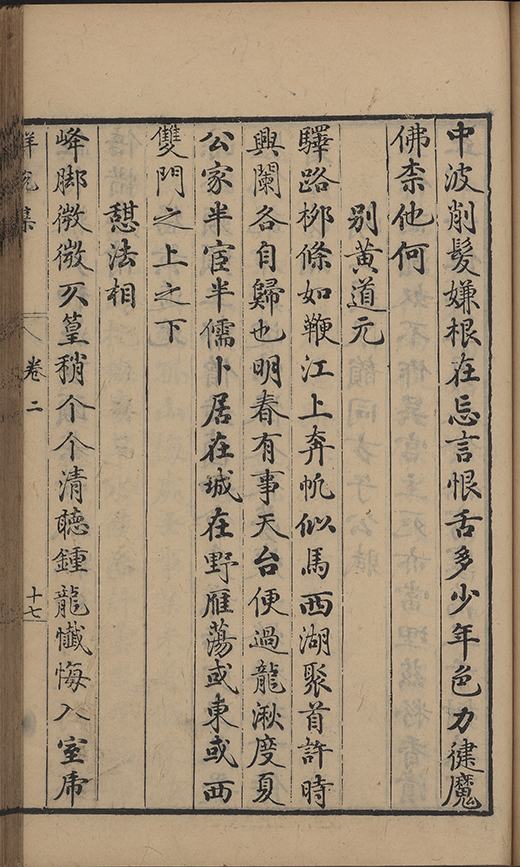 中波削髮嫌根在忘言恨舌多少年色力健魔
佛柰他何
別黃道元
驛路柳條如鞭江上奔帆似馬西湖聚首許時
興闌各自歸也明春有事天台便過龍湫度夏
公家半宦半儒卜居在城在野雁蕩或東或西
雙門之上之下
憇法相
峰脚微微又篁稍个个清聴鍾龍懺悔入室席
集
卷二
十七